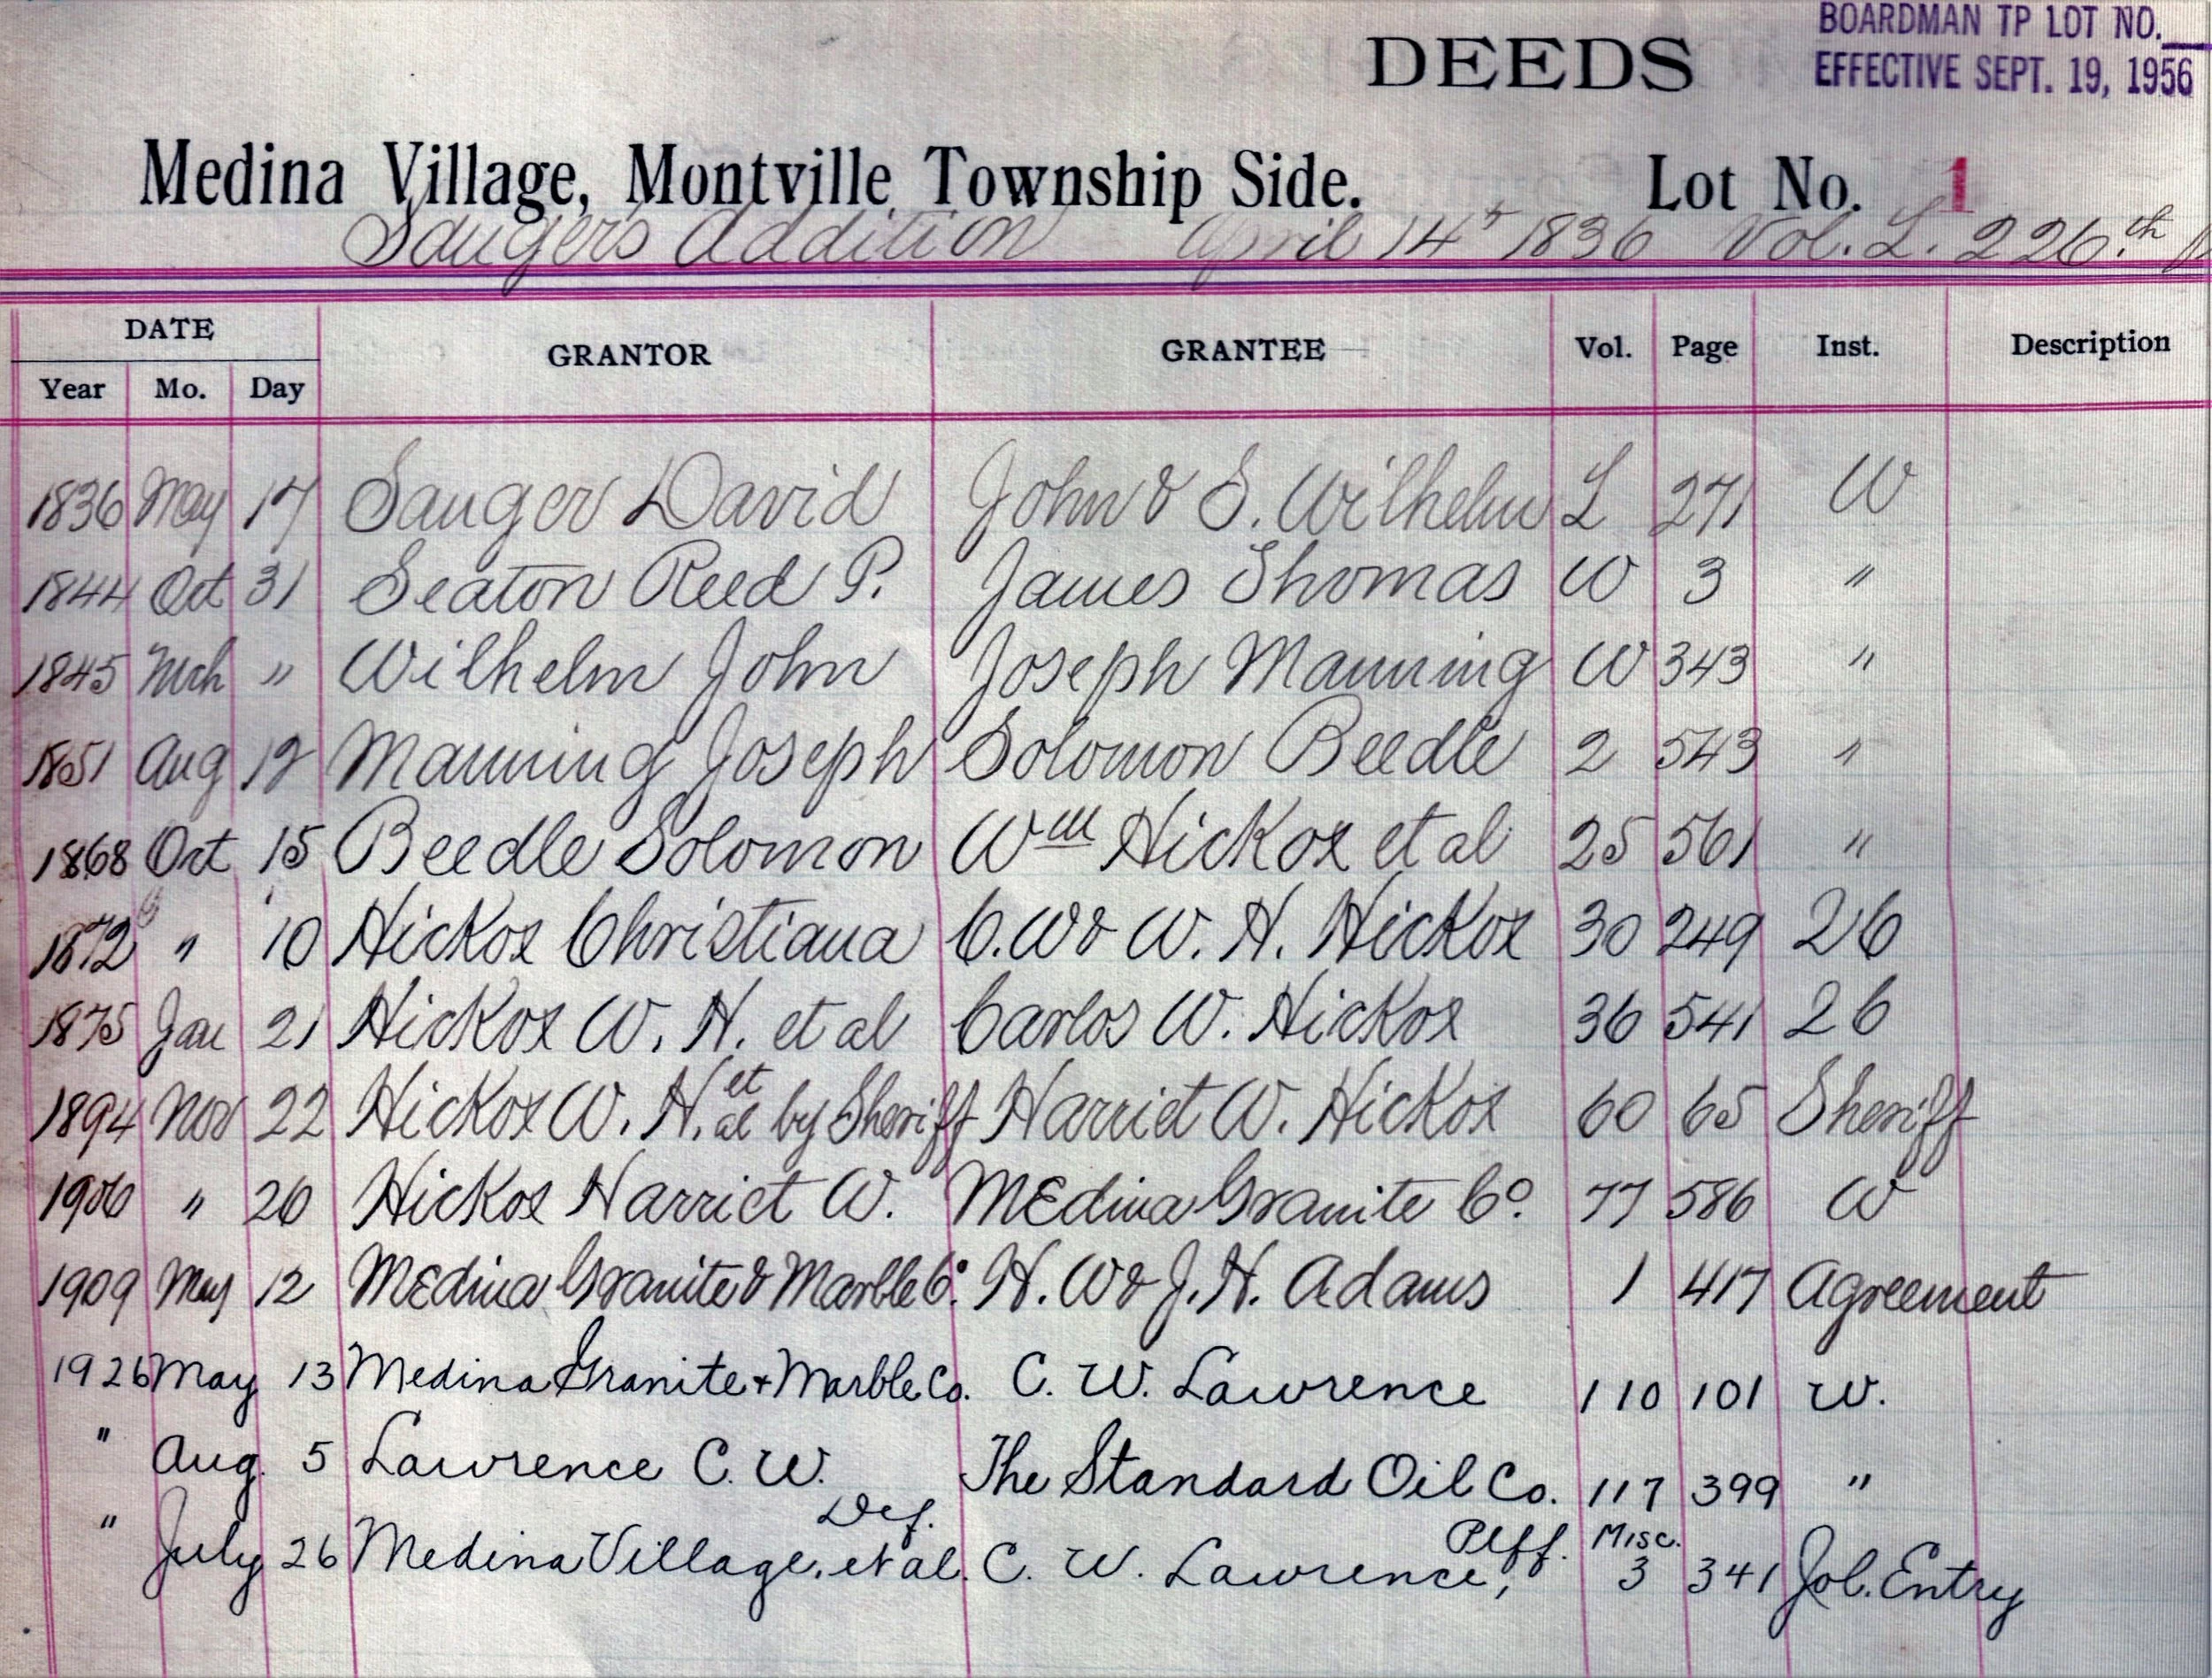 BOARDMAN TP LOT NO.
DEEDS EFFECTIVE SEPT. 19, 1956
Medina Village, Montville Township Side. Lot No. 1
Sauger's Addition April 14 1836 Vol. L. 226th
DATE GRANTOR GRANTEE Vol. Page Inst. Description
Year Mo. Day
1836 May 17 Sauger David John & S. Wilhelm L 271 W
1844 Oct 31 Seaton Reed P. James Thomas W 3 "
1845 Mch " Wilhelm John Joseph Manning W 343 "
1851 Aug 12 Manning Joseph Solomon Beedle 2 543 "
1868 Oct 15 Beedle Solomon Wm Hickox et al 25 561 "
1872 " 10 Hickox Christiana C. W & W. H. Hickox 30 249 26
1875 Jan 21 Hickox W. H. et al Carlos W. Hickox 36 541 26
1894 Nov 22 Hickox W. H. et al by Sheriff Harriet W. Hickox 60 65 Sheriff
1906 " 26 Hickox Harriet W. Medina Granite Co. 77 586 W
1909 May 12 Medina Granite & Marble Co. H. W & J. H. Adams 1 417 Agreement
1926 May 13 Medina Granite + Marble Co. C. W. Lawrence 110 101 W.
" Aug. 5 Lawrence C. W. The Standard Oil Co. 117 399 "
" July 26 Medina Village, et al. Def. C. W. Lawrence, Plff. Misc. 3 341 Jol. Entry